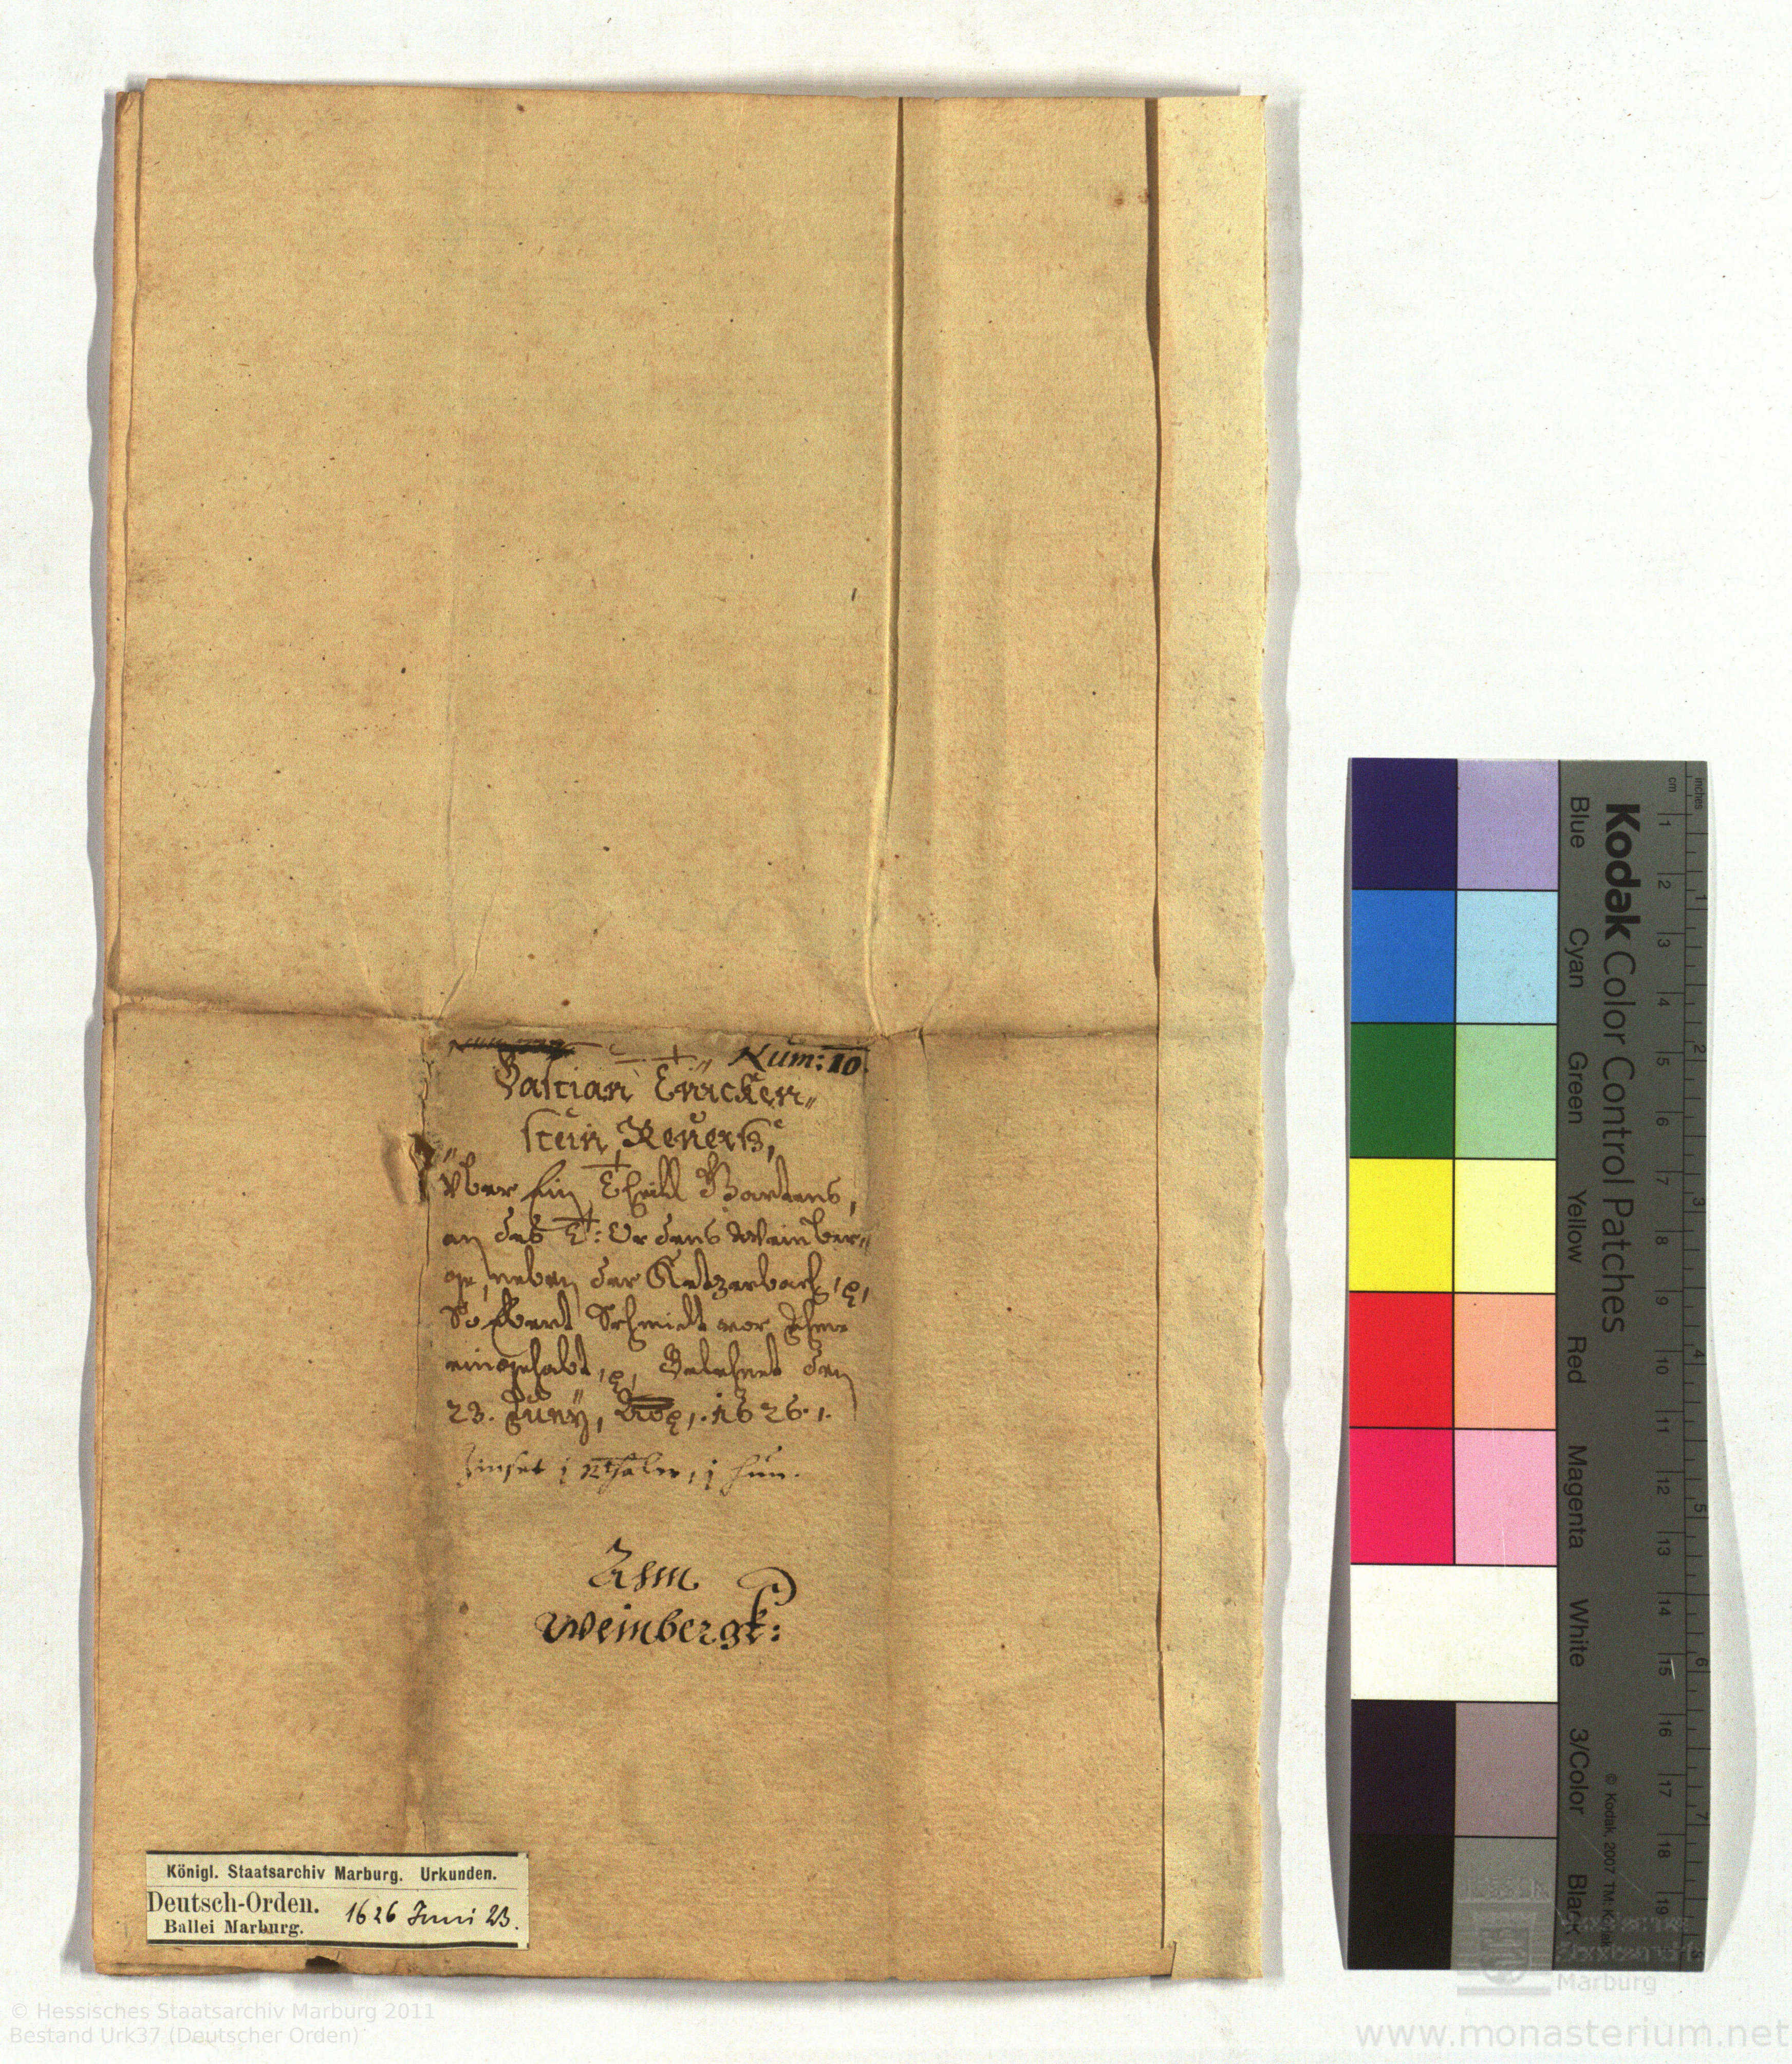 Num: 10.
Bastian Erücken„
stein Reuerß,
Vber Ein Theill Gartens,
an des T: Ordens Weinber„
ge, neben der Ketzerbach, p,
So Ebert Schmidt vor Ihme
eingehabt, p, Belehnet den
23. Juny, Aõ p, 1626.
Zinset j Rthaler, j hun.
Zum
weinbergk:
Königl. Staatsarchiv Marburg. Urkunden.
Deutsch-Orden.
Ballei Marburg.
1626 Juni 23.
Kodak Color Control Patches
Blue Cyan Green Yellow Red Magenta White 3/Color Black
inches 1 2 3 4 5 6 7 8
cm 1 2 3 4 5 6 7 8 9 10 11 12 13 14 15 16 17 18 19
© Kodak, 2007 TM: Kodak
Marburg
© Hessisches Staatsarchiv Marburg 2011
Bestand Urk37 (Deutscher Orden)
www.monasterium.net